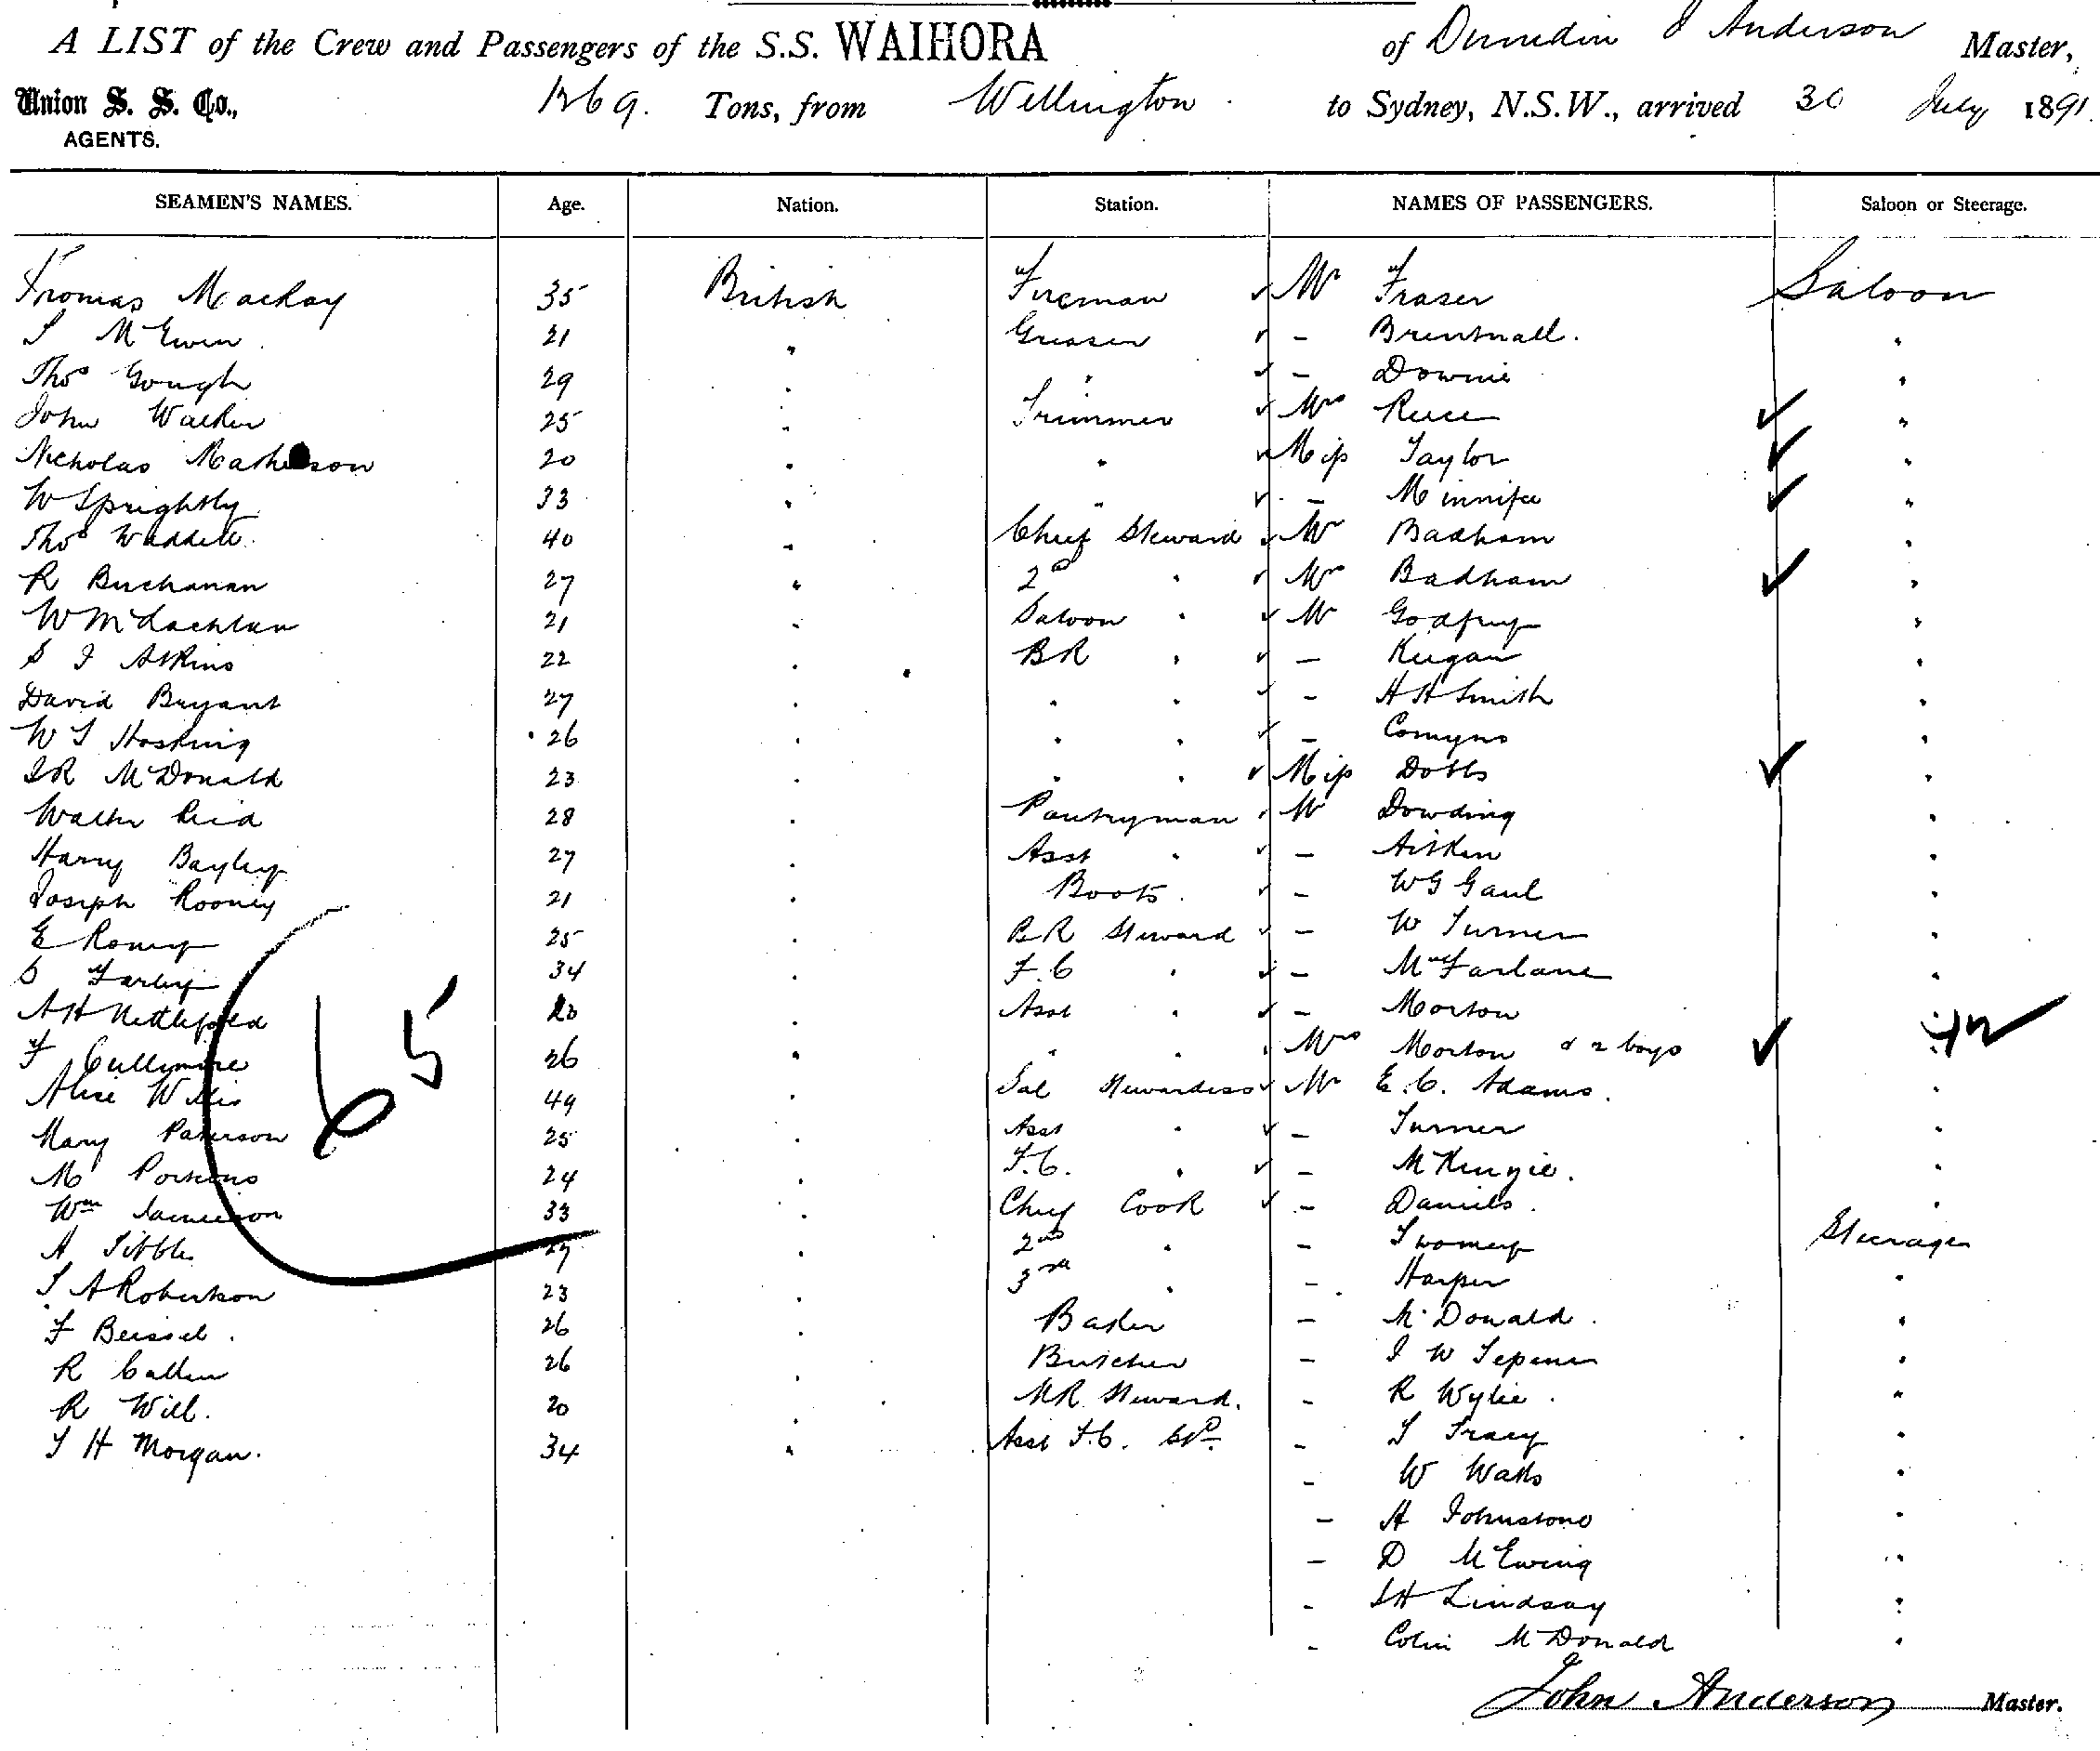 A LIST of the Crew and Passengers of the S.S. WAIHORA of Dunedin J Anderson Master,
Union S. S. Co., 1269. Tons, from Wellington to Sydney, N.S.W., arrived 30 July 1891.
AGENTS.
SEAMEN'S NAMES. Age. Nation. Station. NAMES OF PASSENGERS. Saloon or Steerage.
Thomas Mackay 35 British Fireman ✓ Mr Fraser Saloon
McEwen 21 " Greaser ✓ - Brentnall. "
Thos Gough 29 " " ✓ - Downie "
John Walker 25 " Trimmer ✓ Mrs Reece ✓ "
Nicholas Matheson 20 " " ✓ Miss Taylor ✓ "
W Sprightly 33 " " ✓ - Minnifie ✓ "
Thos Waddell 40 " Chief Steward ✓ Mr Badham "
R Buchanan 27 " 2d " ✓ Mrs Badham ✓ "
W McLachlan 21 " Saloon " ✓ Mr Godfrey "
S J Atkins 22 " BR " ✓ - Keegan "
David Bryant 27 " " " ✓ - H H Smith "
W T Hosking 26 " " " ✓ - Comyns "
J R McDonald 23 " " " ✓ Miss Dobbs ✓ "
Walter Reid 28 " Pantryman ✓ Mr Dowding "
Harry Bayley 27 " Asst " ✓ - Aitken "
Joseph Rooney 21 " Boots. ✓ - W G Gaul "
E Romey 25 " BR Steward ✓ - W Turner "
S Farley 34 " F.C " ✓ - McFarlane "
A H Nettlefold 20 " Asst " ✓ - Morton "
F Cullymore 26 " " " ✓ Mrs Morton & 2 boys ✓ "
Alice Willis 49 " Sal Stewardess ✓ Mr E. C. Adams. "
Mary Paterson 25 " Asst " ✓ - Turner "
M Porteous 24 " F.C. " ✓ - McKenzie. "
Wm Jamieson 33 " Chief Cook ✓ - Daniels. "
A Tibble 27 " 2nd " - Twomey Steerage
T A Robertson 23 " 3rd " - Harper "
F Beissel. 26 " Baker - McDonald. "
R Callen 26 " Butcher - J W Tepener "
R Will. 20 " MR Steward. - R Wylie. "
T H Morgan. 34 " Asst F.C. - T Tracy "
- W Watts "
- A Johnstone "
- D McEwing "
- J H Lindsay "
- Colin McDonald "
65
John Anderson Master.